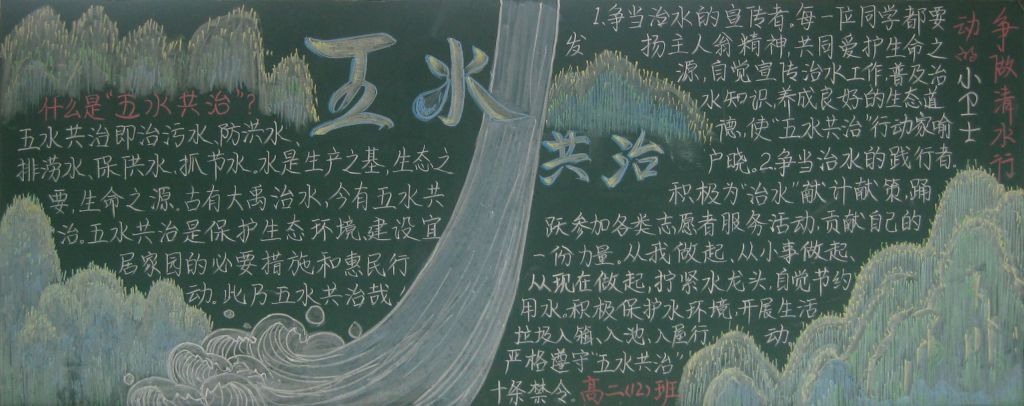 五水
共治
什么是"五水共治"?
五水共治即治污水、防洪水、
排涝水、保供水、抓节水。水是生产之基，生态之
要，生命之源。古有大禹治水，今有五水共
治。五水共治是保护生态环境，建设宜
居家园的必要措施和惠民行
动。此乃五水共治哉。
1.争当治水的宣传者。每一位同学都要
发扬主人翁精神，共同爱护生命之
源，自觉宣传治水工作，普及治
水知识，养成良好的生态道
德，使"五水共治"行动家喻
户晓。2.争当治水的践行者，
积极为"治水"献计献策，踊
跃参加各类志愿者服务活动，贡献自己的
一份力量。从我做起，从小事做起，
从现在做起，拧紧水龙头，自觉节约
用水，积极保护水环境，开展生活
垃圾入箱、入池、入屋行动
严格遵守"五水共治"
十条禁令。高二(12)班
争做清水行
动的小卫士